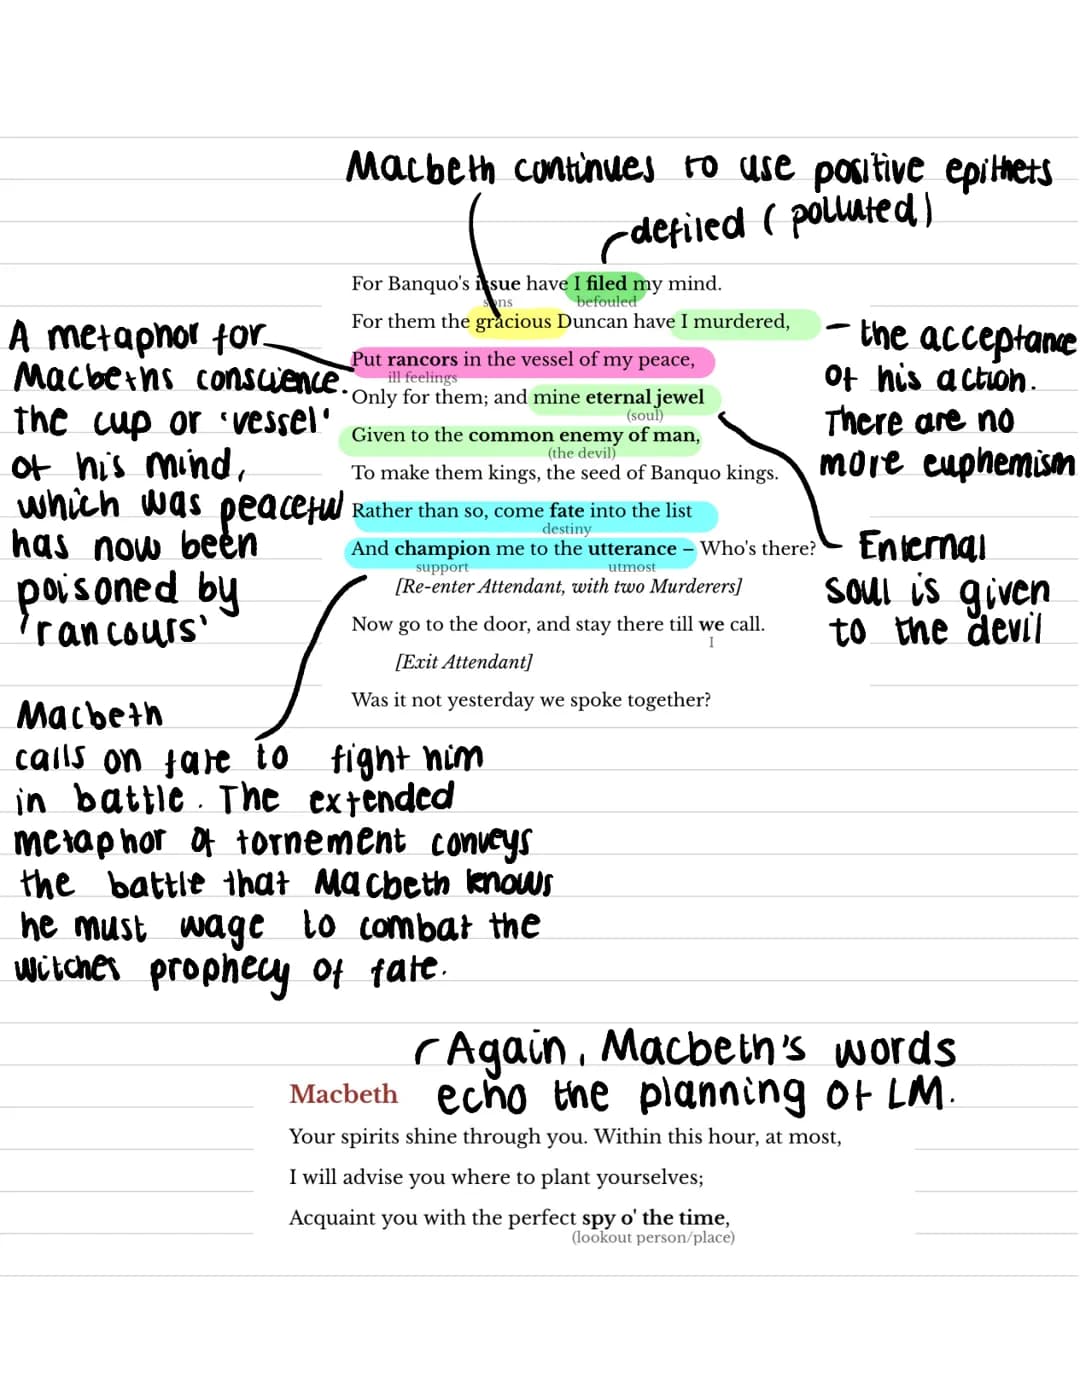 Macbeth continues to use positive epithets
defiled (polluted)
For Banquo's issue have I filed my mind.
sons befouled
For them the gracious Duncan have I murdered,
Put rancors in the vessel of my peace,
ill feelings
Only for them; and mine eternal jewel
(soul)
Given to the common enemy of man,
(the devil)
To make them kings, the seed of Banquo kings.
Rather than so, come fate into the list
destiny
And champion me to the utterance – Who's there?
support utmost
[Re-enter Attendant, with two Murderers]
Now go to the door, and stay there till we call.
I
[Exit Attendant]
Was it not yesterday we spoke together?
A metaphor for
Macbeths conscience.
The cup or 'vessel'
of his mind,
which was peaceful
has now been
poisoned by
'rancours'
– the acceptance
of his action.
There are no
more euphemism
Enternal
soul is given
to the devil
Macbeth
calls on fate to fight him
in battle. The extended
metaphor of tornement conveys
the battle that Macbeth knows
he must wage to combat the
witches prophecy of fate.
Again, Macbeth's words
echo the planning of LM.
Macbeth
Your spirits shine through you. Within this hour, at most,
I will advise you where to plant yourselves;
Acquaint you with the perfect spy o' the time,
(lookout person/place)